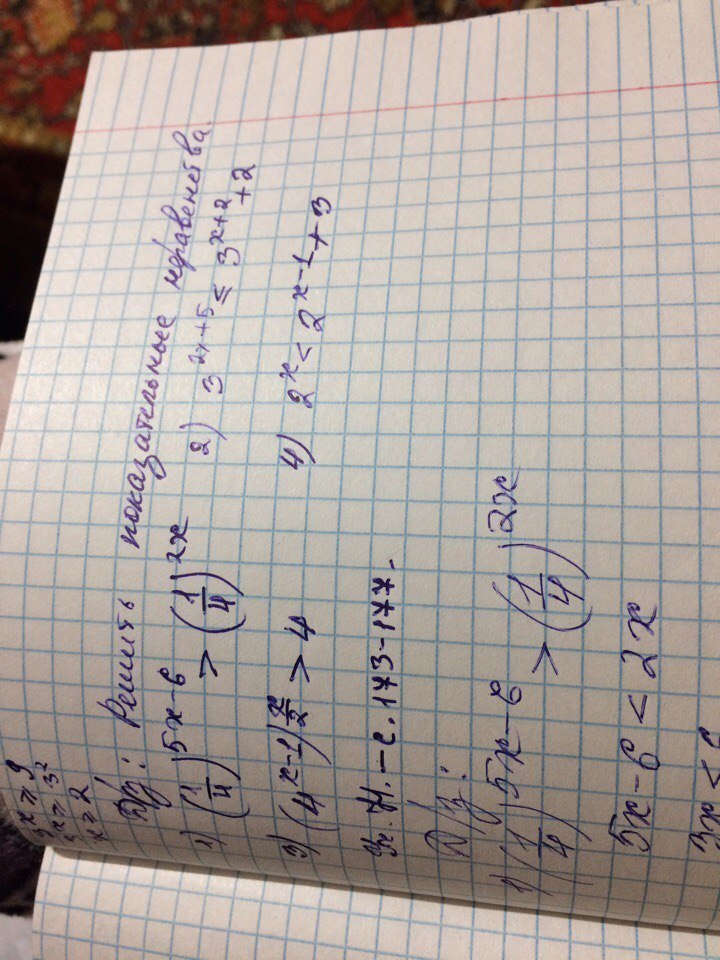 3^x ≥ 9
3^x ≥ 3^2
x ≥ 2
Д/з: Решить показательные неравенства.
1) (1/4)^5x-6 > (1/4)^2x 2) 3^2x+5 ≤ 3^x+2 + 2
3) (4^x-1)^x/2 > 4 4) 2^x < 2^x-1 + 3
- с. 173-177.
Д/з:
1) (1/4)^5x-6 > (1/4)^2x
5x-6 < 2x
3x < 6